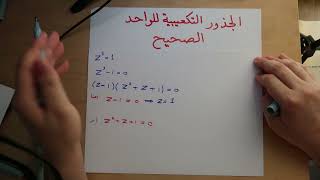 الجذور التكعيبية للواحد
الصحيح
z³=1
z³-1=0
(z-1)(z²+z+1)=0
z-1=0 ⟹ z=1
z²+z+1=0